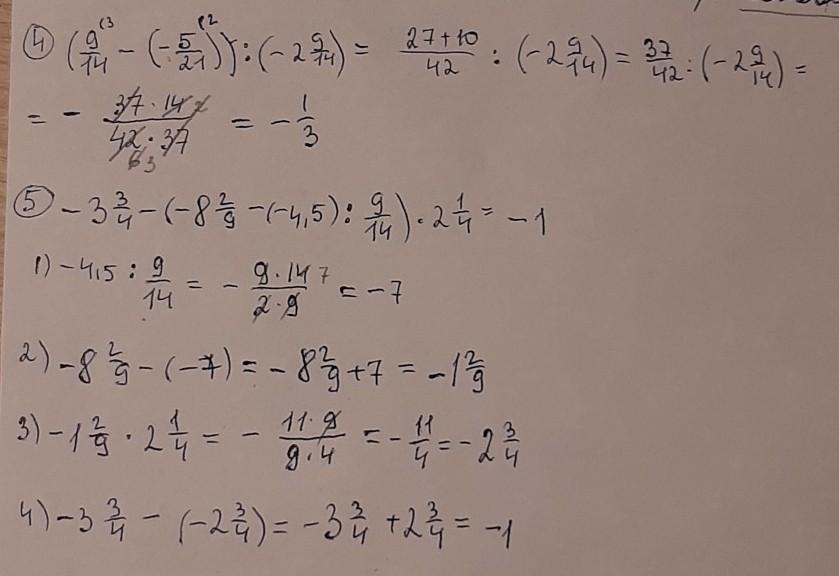 ④ (9/14 - (-5/21)) : (-2 9/14) = 27+10/42 : (-2 9/14) = 37/42 : (-2 9/14) =
= - 37·14/42·37 = - 1/3
⑤ -3 3/4 - (-8 2/9 - (-4,5) : 9/14) · 2 1/4 = -1
1) -4,5 : 9/14 = - 9·14 7/2·9 = -7
2) -8 2/9 - (-7) = -8 2/9 + 7 = -1 2/9
3) -1 2/9 · 2 1/4 = - 11·9/9·4 = - 11/4 = -2 3/4
4) -3 3/4 - (-2 3/4) = -3 3/4 + 2 3/4 = -1